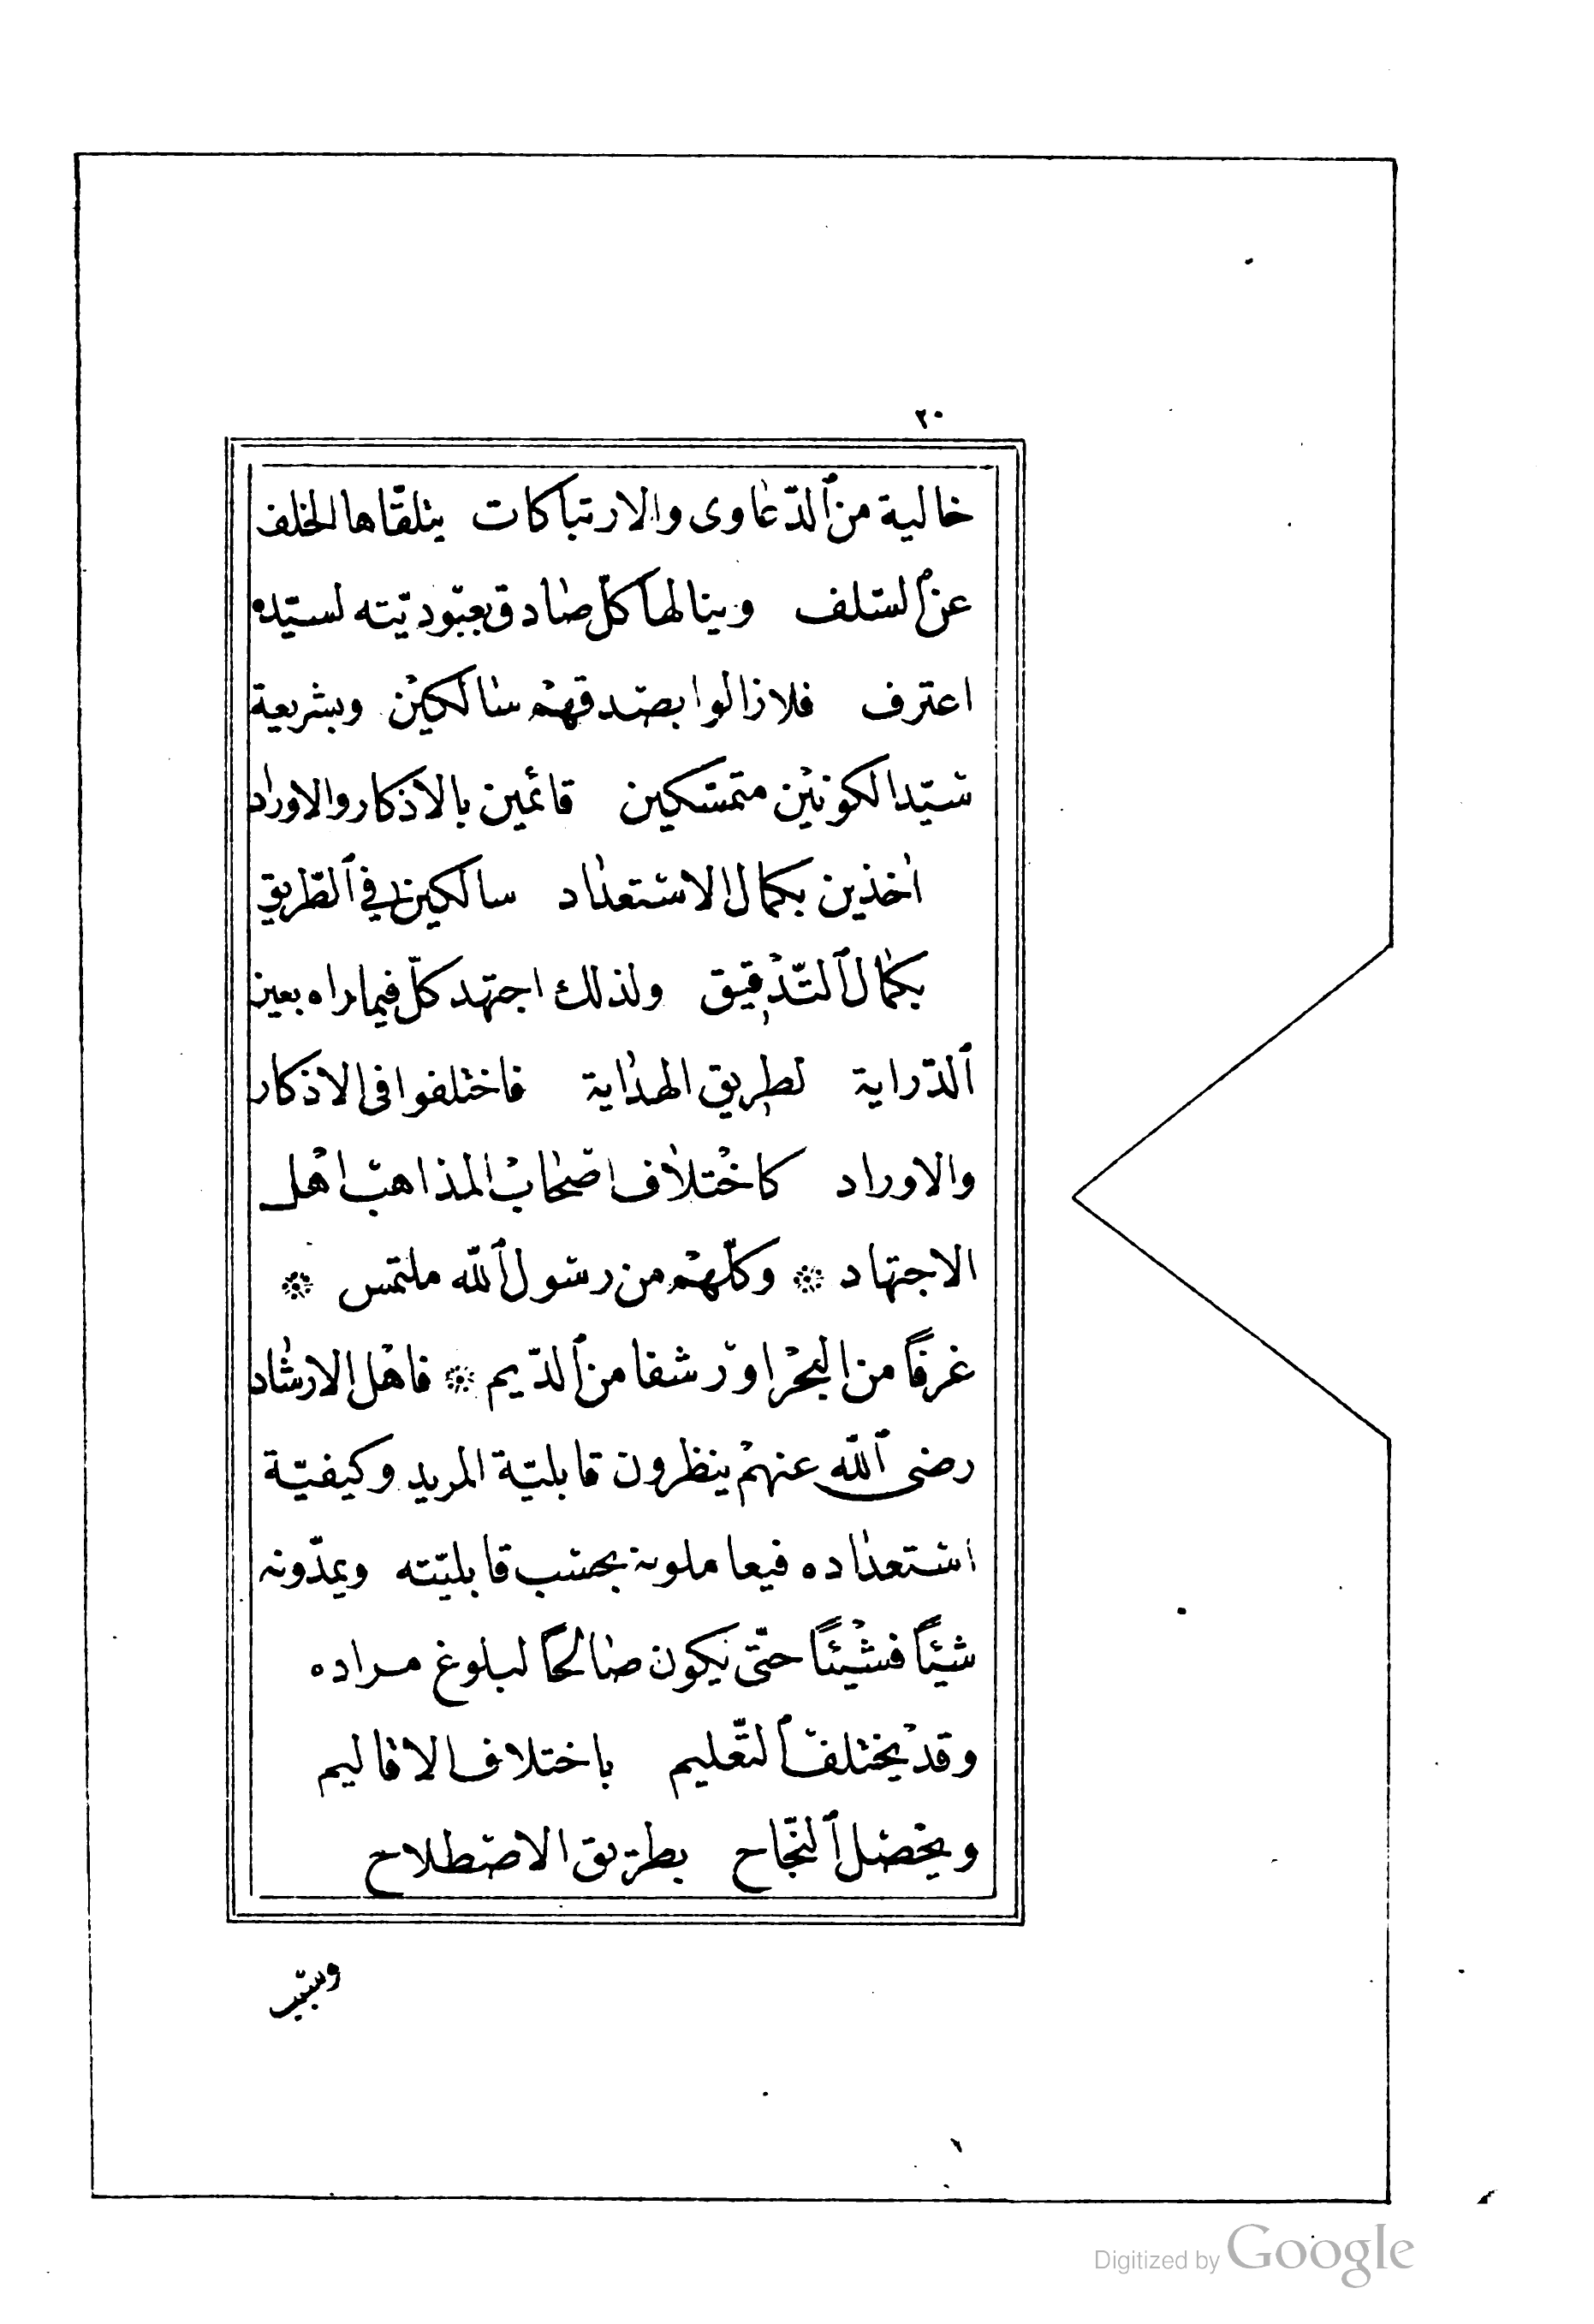 ٢٠
خالية من ٱلدّعاوى والارتباكات يتلقّاها الخلف
عن ٱلسّلف وينالها كلّ صادق بعبّوديّته لسيّده
اعترف فلا زالوا بصدقهم سالكين وبشريعة
سيّد الكونين متمسّكين قائمين بالاذكار والاوراد
اٰخذين بكمال الاستعداد سالكين في ٱلطّريق
بكمال ٱلتّدقيق ولذلك اجتهد كلّ فيما راه بعين
ٱلدّراية لطريق الهداية فاختلفوا فى الاذكار
والاوراد كاختلاف اصحاب المذاهب اهل
الاجتهاد ❊ وكلّهم من رسول ٱللّٰه ملتمس ❊
غرفًا من البحر او رشفا من ٱلدّيم ❊ فاهل الارشاد
رضى ٱللّٰه عنهم ينظرون قابليّة المريد وكيفيّة
استعداده فيعاملونه بحسب قابليّته ويمدّونه
شيئًا فشيئًا حتّى يكون صالحًا لبلوغ مراده
وقد يختلف ٱلتّعليم باختلاف الاقاليم
ويحصل ٱلنّجاح بطريق الاصطلاح
Digitized by Google